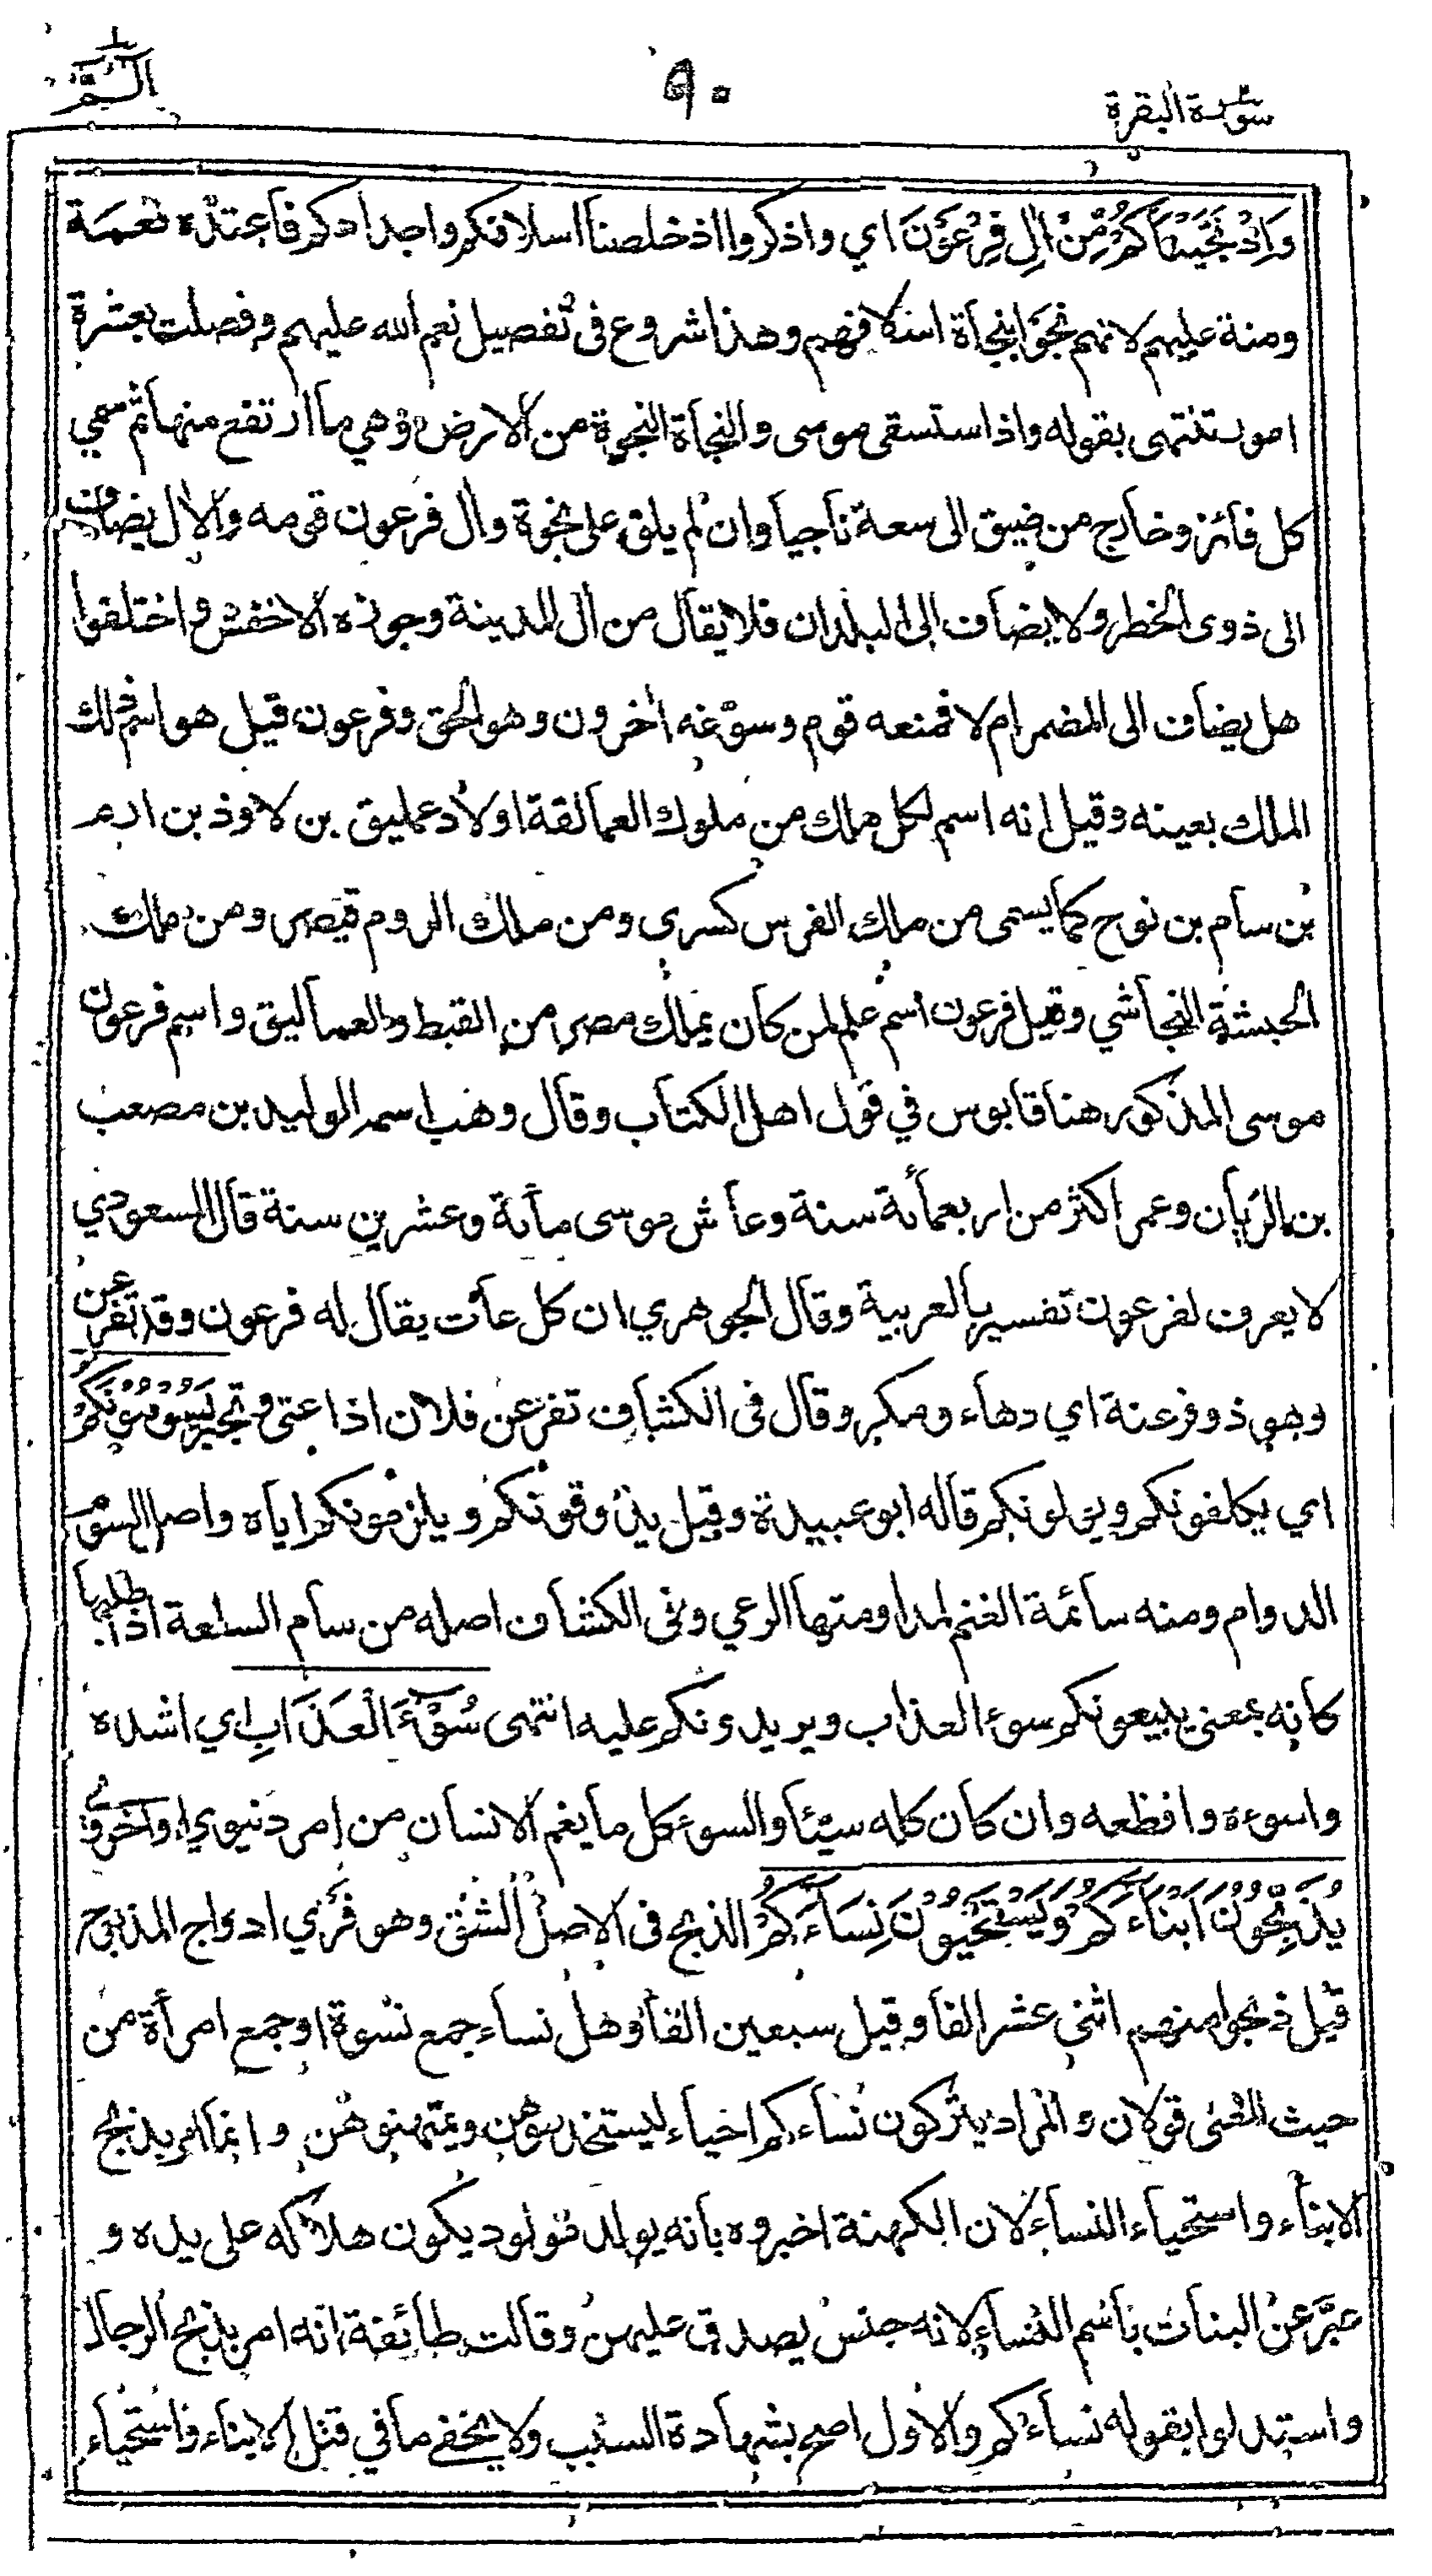 سورة البقرة
٩٠
الٓمّٓ
وَاِذْ نَجَّيْنَاكُمْ مِّنْ اٰلِ فِرْعَوْنَ اي واذكروا اذ خلصنا اسلافكم واجدادكم فاعتدّه نعمة
ومنة عليهم لانهم نجوا بنجاة اسلافهم وهذا شروع فى تفصيل نعم الله عليهم وفصلت بعشرة
امور تنتهى بقوله واذ استسقى موسى والنجاة النجوة من الارض وهي ما ارتفع منها ثم سمي
كل فائز وخارج من ضيق الى سعة ناجيا وان لم يلق على نجوة وأل فرعون قومه والأل يضاف
الى ذوى الخطر ولا يضاف الى البلدان فلا يقال من أل المدينة وجوزه الاخفش واختلفوا
هل يضاف الى المضمر ام لا فمنعه قوم وسوّغه أخرون وهو الحق وفرعون قيل هو اسم ذلك
الملك بعينه وقيل انه اسم لكل ملك من ملوك العمالقة اولاد عمليق بن لاوذ بن ارم
بن سام بن نوح كما يسمى من ملك الفرس كسرى ومن ملك الروم قيصر ومن ملك
الحبشة النجاشي وقيل فرعون اسم علم لمن كان يملك مصر من القبط والعماليق واسم فرعون
موسى المذكور هنا قابوس في قول اهل الكتاب وقال وهب اسمه الوليد بن مصعب
بن الريان وعمر اكثر من اربعمأئة سنة وعاش موسى مأئة وعشرين سنة قال المسعودي
لا يعرف لفرعون تفسير بالعربية وقال الجوهري ان كل عات يقال له فرعون وقد تفرعن
وهو ذو فرعنة اي دهاء ومكر وقال فى الكشاف تفرعن فلان اذا عتى وتجبر يَسُوْمُوْنَكُمْ
اي يكلفونكم ويولونكم قاله ابو عبيدة وقيل يذوقونكم ويلزمونكم اياه واصل السوم
الدوام ومنه سائمة الغنم لمداومتها الرعي وفى الكشاف اصله من سام السلعة اذا طلبها
كانه بمعنى يبيعونكم سوء العذاب ويريدونكم عليه انتهى سُوْٓءَ الْعَذَابِ اي اشده
واسوءه وافظعه وان كان كله سيئا والسوء كل ما يغم الانسان من امر دنيوي او اخروي
يُذَبِّحُوْنَ اَبْنَآءَكُمْ وَيَسْتَحْيُوْنَ نِسَآءَكُمْ الذبح فى الاصل الشق وهو فري اوداج المذبوح
قيل ذبحوا منهم اثنى عشر الفا وقيل سبعين الفا وهل نساء جمع نسوة او جمع امرأة من
حيث المعنى قولان والمراد يتركون نساءكم احياء ليستخدموهن ويمتهنوهن وانما امر بذبح
الابناء واستحياء النساء لان الكهنة اخبروه بأنه يولد مولود يكون هلاكه على يده و
عبّر عن البنات باسم النساء لانه جنس يصدق عليهن وقالت طائفة انه امر بذبح الرجال
واستدلوا بقوله نساءكم والاول اصح بشهادة السبب ولا يخفى ما في قتل الابناء واستحياء